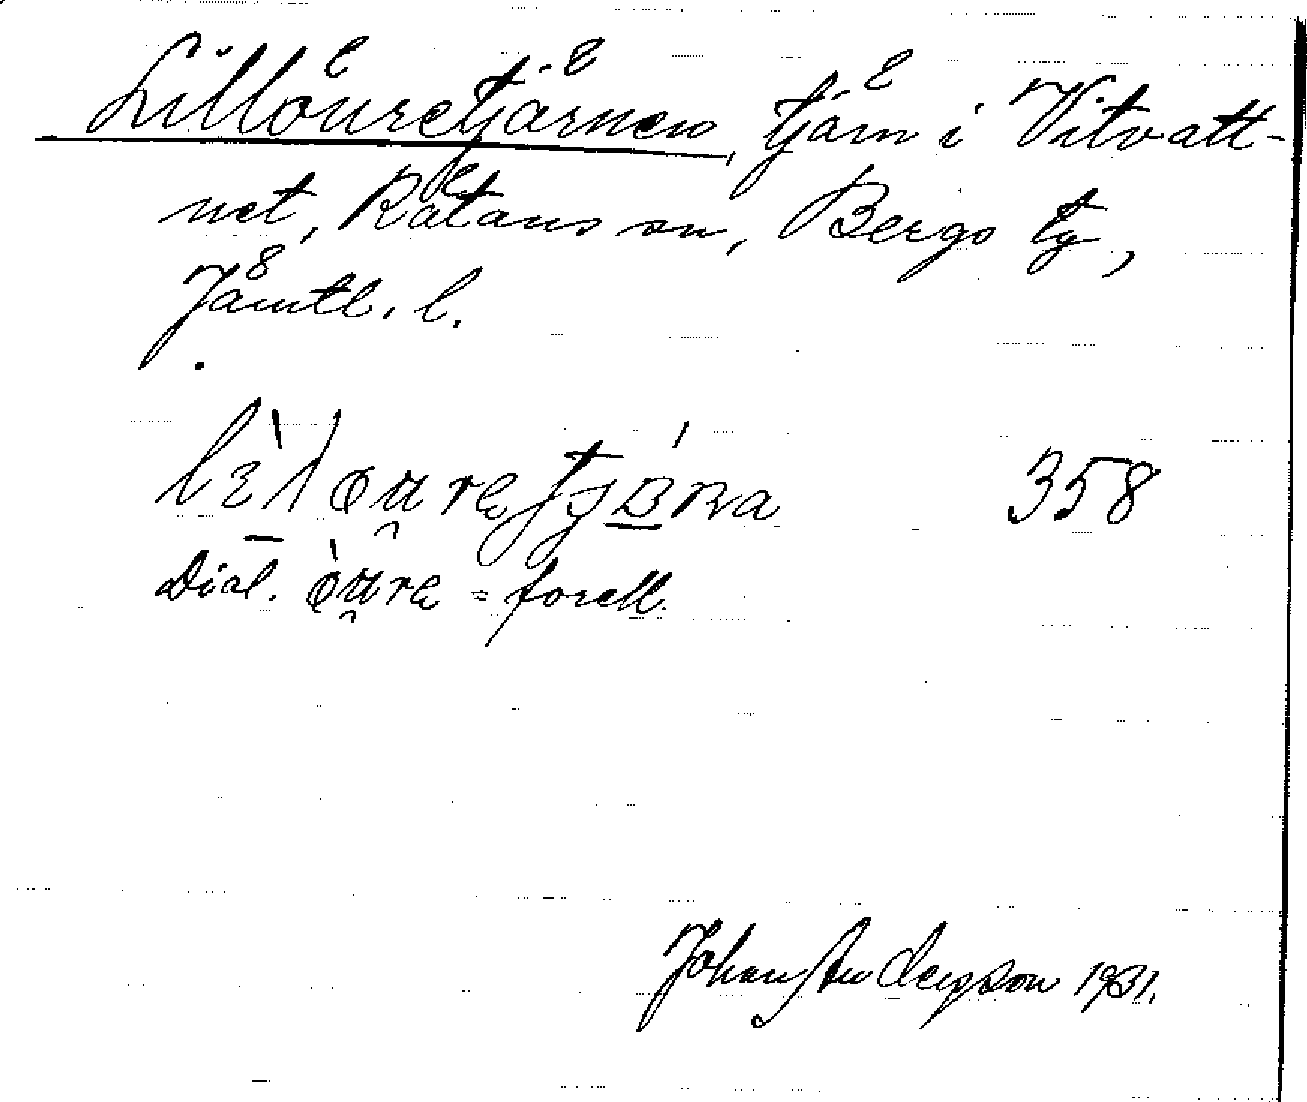 Lillöuretjärnen, tjärn i Vitvatt-
net, Rätans sn, Bergs tg,
Jämtl. l.
358
Dial. = forell.
Johan Anderson 1931.